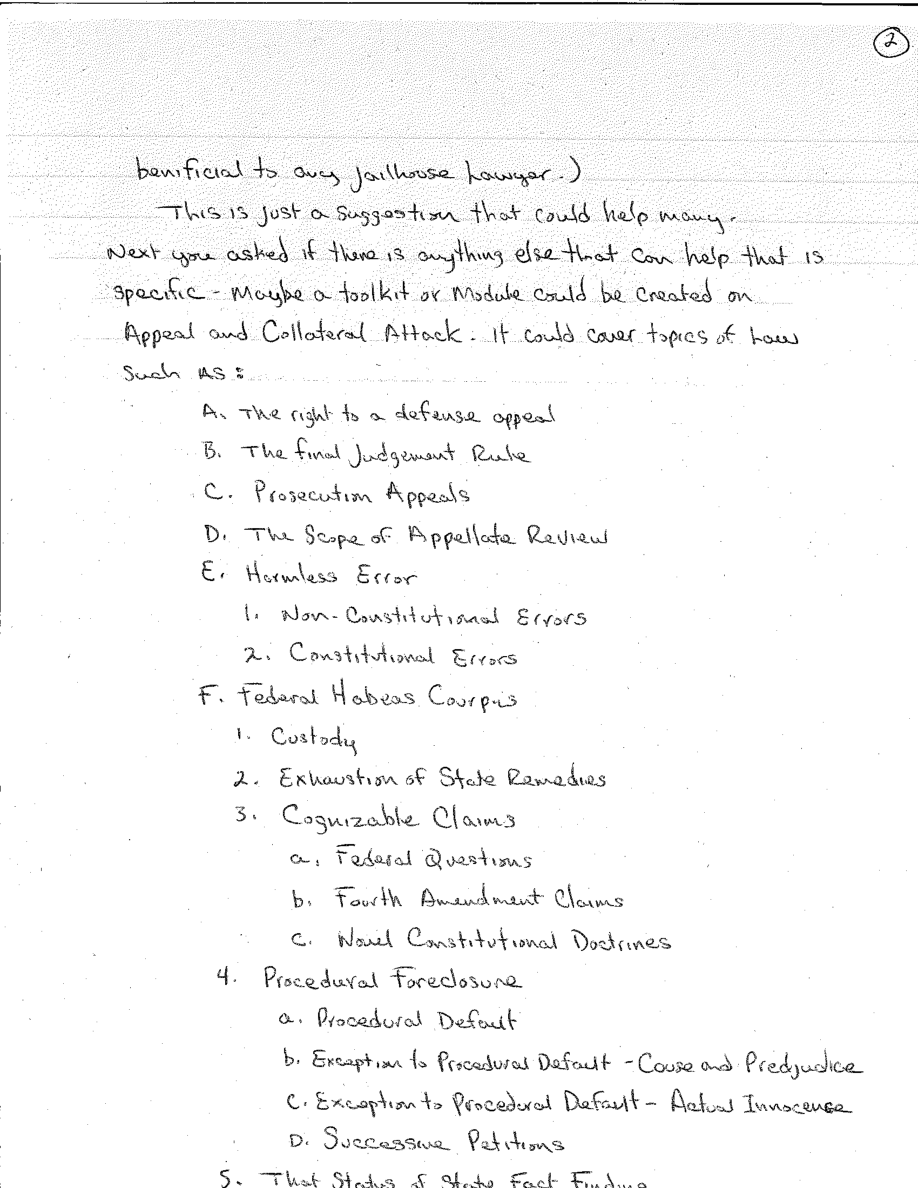 2
benificial to any Jailhouse Lawyer.)
This is just a suggestion that could help many.
Next you asked if there is anything else that can help that is
specific - Maybe a toolkit or Module could be created on
Appeal and Collateral Attack. It could cover topics of Law
Such AS:
A. The right to a defense appeal
B. The final Judgement Rule
C. Prosecution Appeals
D. The Scope of Appellate Review
E. Harmless Error
1. Non-Constitutional Errors
2. Constitutional Errors
F. Federal Habeas Courpus
1. Custody
2. Exhaustion of State Remedies
3. Cognizable Claims
a. Federal Questions
b. Fourth Amendment Claims
c. Novel Constitutional Doctrines
4. Procedural Foreclosure
a. Procedural Default
b. Exception to Procedural Default - Cause and Predjudice
C. Exception to Procedural Default - Actual Innocense
D. Successive Petitions
5. That Status of State Fact Finding